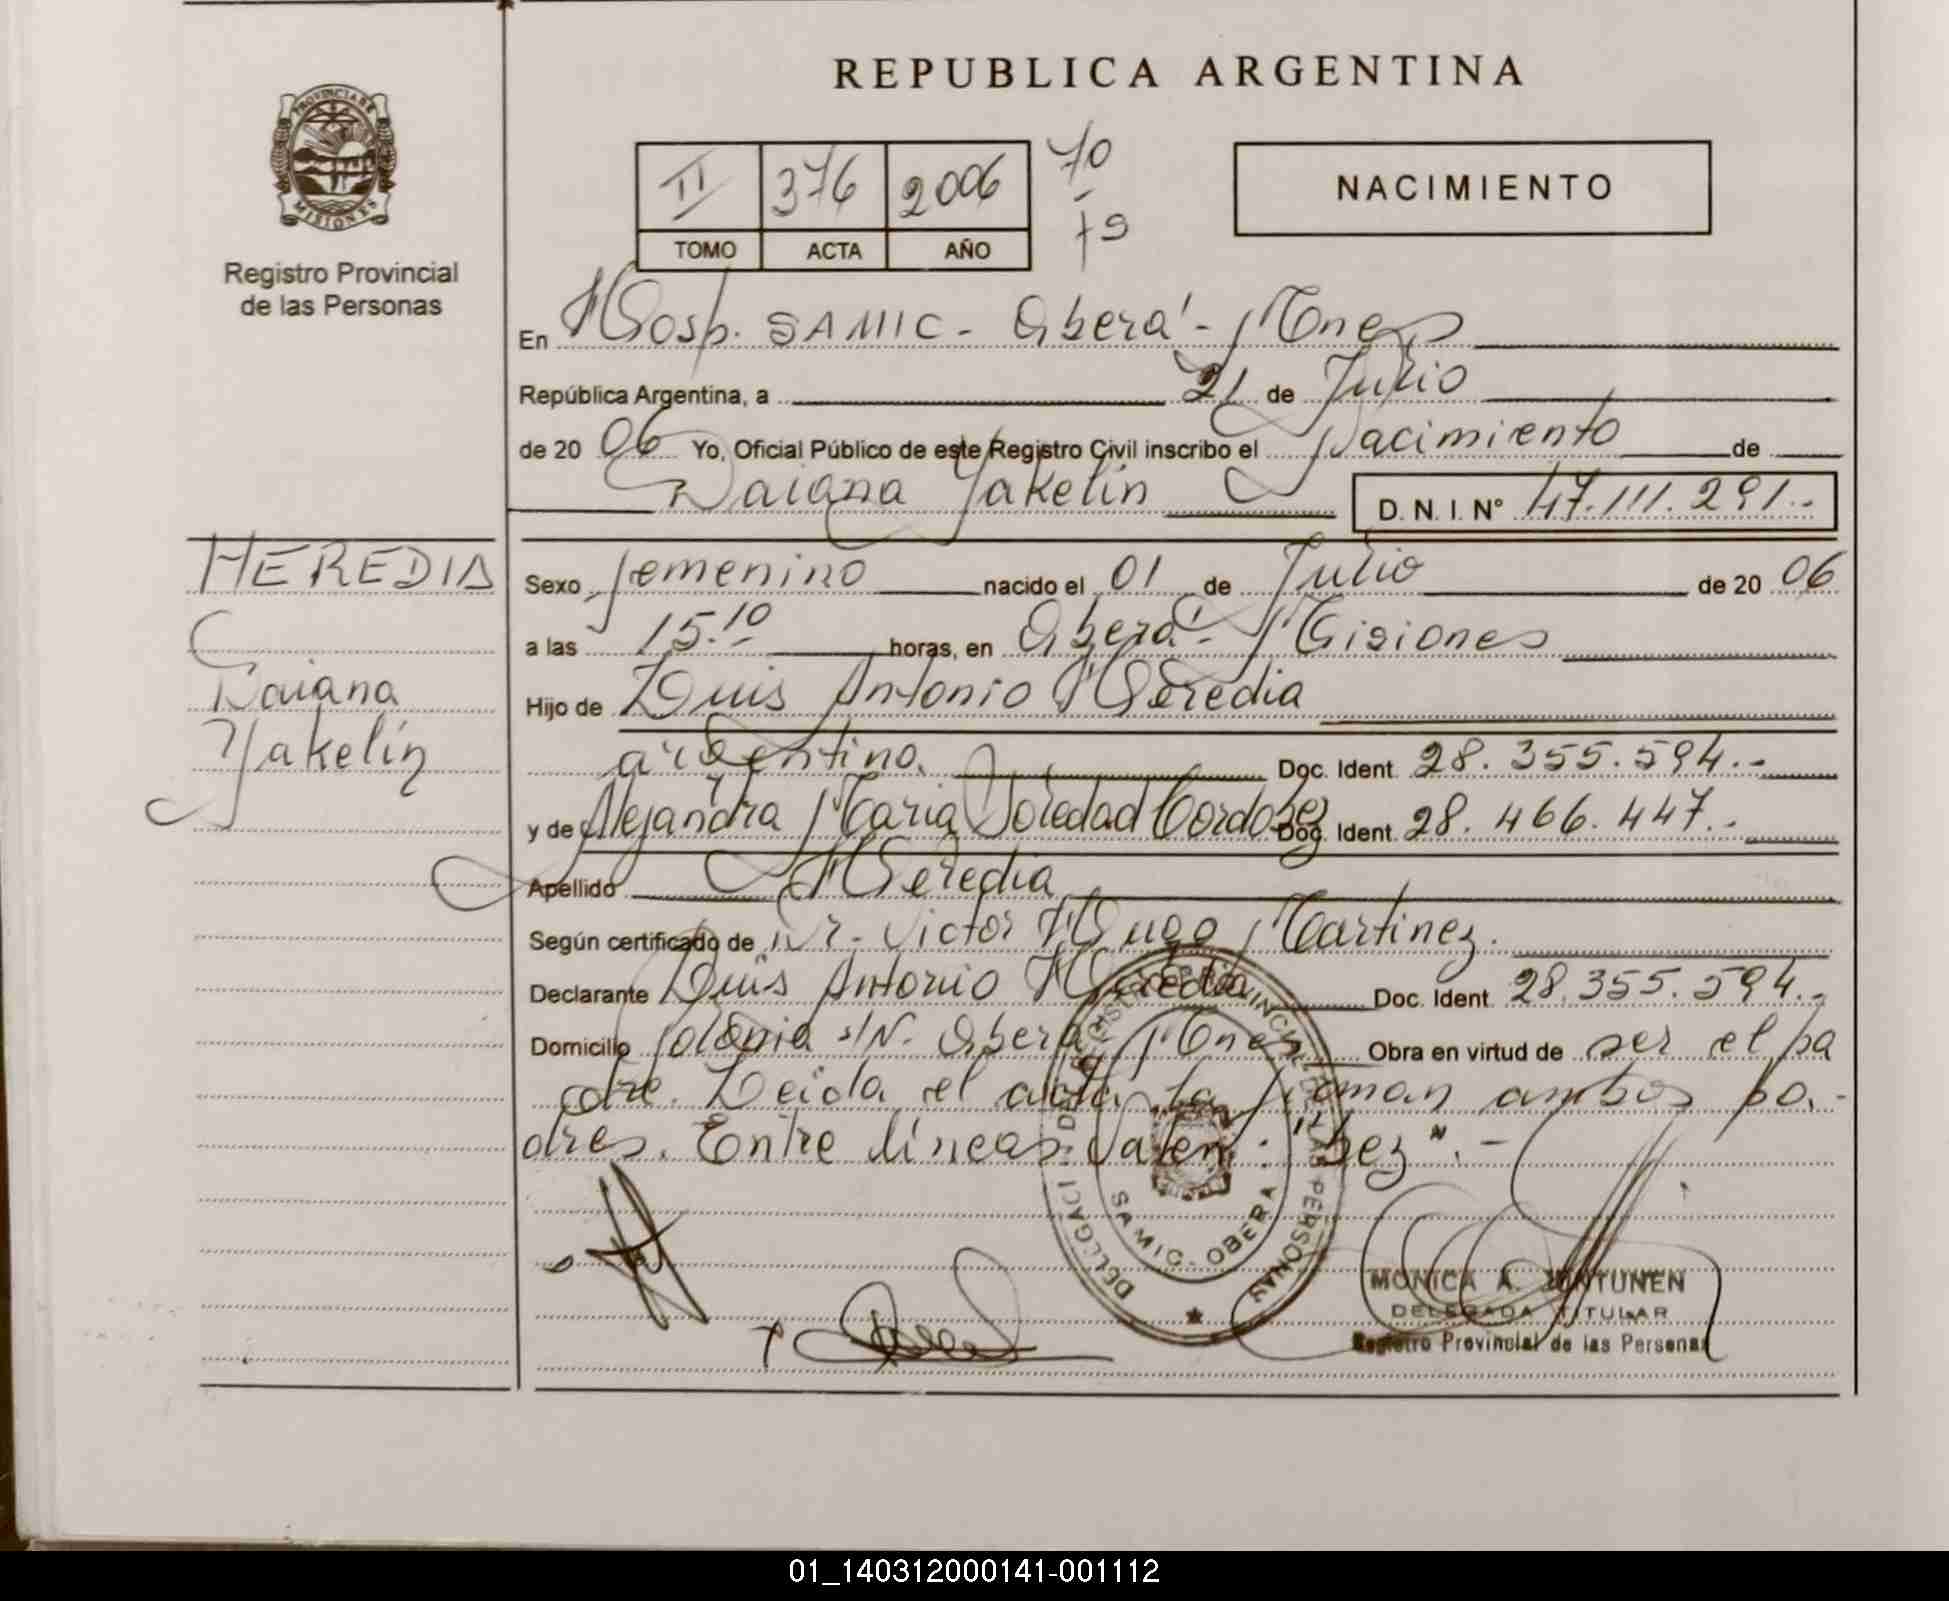 REPUBLICA ARGENTINA
PROVINCIA DE
MISIONES
Registro Provincial
de las Personas
II 376 2006 70
TOMO ACTA AÑO 79
NACIMIENTO
En Hosp. SAMIC - Oberá - Mnes
República Argentina, a 21 de Julio
de 20 06 Yo, Oficial Público de este Registro Civil inscribo el Nacimiento de
Daiana Yakelin D. N. I. N° 47.111.291.-
HEREDIA
Daiana
Yakelin
Sexo femenino nacido el 01 de Julio de 20 06
a las 15.10 horas, en Oberá - Misiones
Hijo de Luis Antonio Heredia
argentino. Doc. Ident. 28.355.594.-
y de Alejandra Maria Soledad Cordobez Doc. Ident. 28.466.447.-
Apellido Heredia
Según certificado de Dr. Victor Hugo Martinez.
Declarante Luis Antonio Heredia Doc. Ident. 28.355.594.-
Domicilio Colonia s/N. Oberá - Mnes Obra en virtud de ser el pa
dre. Leida el acta la firman ambos pa.-
dres. Entre líneas Valen: "bez".-
DE LAS PERSONAS
SAMIC. OBERA
MONICA A.
DELEGADA TITULAR
Registro Provincial de las Personas
01_140312000141-001112